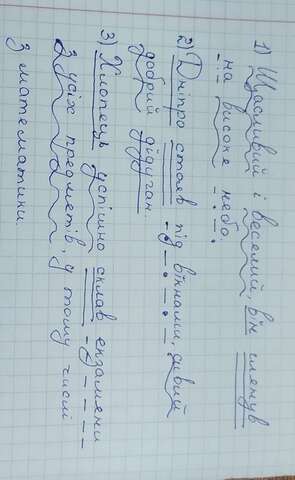 1) Щасливий і веселий, він глянув
на високе небо.
2) Дніпро стояв під вікнами, сивий
добрий дідуган.
3) Хлопець успішно склав екзамени
З усіх предметів, у тому числі
З математики.